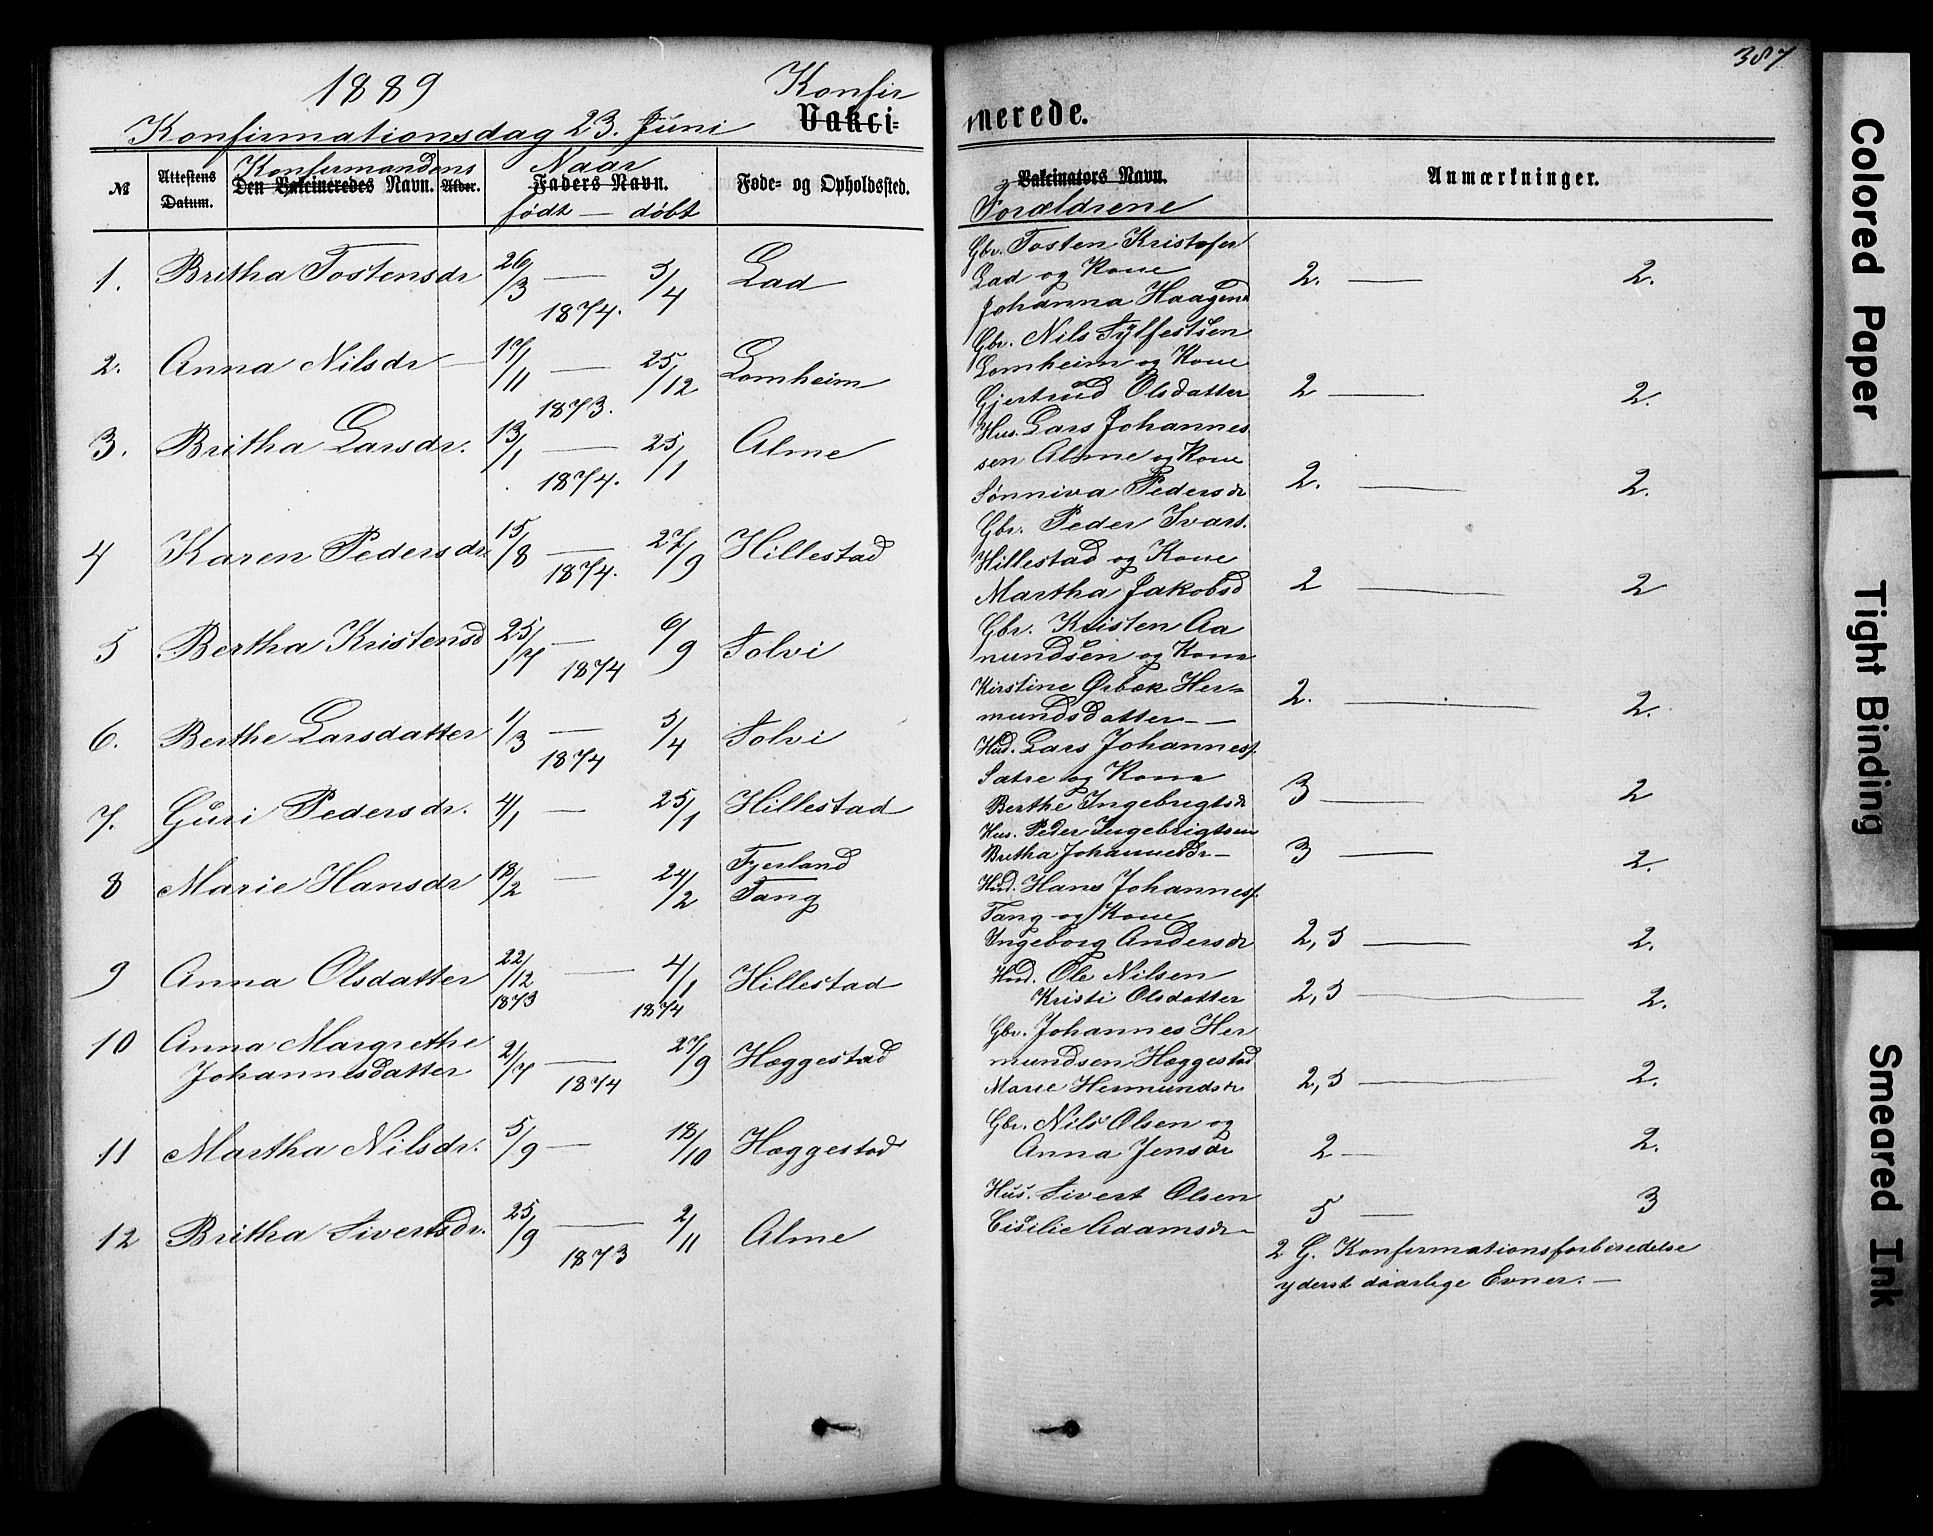 1889
Konfirmationsdag 23. Juni
Konfir
Vakci=
№
Attestens Datum.
Konfirmandens
Den Vakcineredes Navn.
Alder.
Naar
Faders Navn.
født — døbt
Føde= og Opholdssted.
1. Britha Tostensdr 26/3 — 5/4 Lad
1874.
2. Anna Nilsdr — 17/11 — 25/12 Lomheim
1873.
3. Britha Larsdr. 13/1 — 25/1 Alme
1874.
4 Karen Pedersdr. 15/8 — 27/9 Hillestad
1874.
5 Bertha Kristensd 25/7 — 6/9 Solvi
1874
6. Berthe Larsdatter 1/3 — 5/4 Solvi
1874
7. Guri Pedersdr. 4/1 — 25/1 Hillestad
8 Marie Hansdr 18/2 — 24/2 Fjerland
Tang
9 Anna Olsdatter 22/12 — 4/1 Hillestad
1873 1874
10 Anna Margrethe
Johannesdatter 2/7 — 27/9 Hæggestad
1874
11 Martha Nilsdr. 5/9 — 18/10 Hæggestad
12 Britha Sivertsdr. 25/9 — 2/11 Alme
1873
387
nerede.
Vakcinators Navn.
Forældrene
Anmærkninger.
Gbr. Tosten Kristofer
Lad og Kone 2. — 2.
Johanna Haagend
Gbr. Nils Sylfestsen
Lomheim og Kone
Gjertrud Olsdatter 2 — 2.
Hus. Lars Johannes
sen Alme og Kone
Sønniva Pedersdr 2. — 2.
Gbr. Peder Ivars.
Hillestad og Kone
Martha Jakobsd 2 — 2
Gbr. Kristen Aa
mundsen og Kone
Kirstine Ørbæk Her=
mundsdatter — 2. — 2.
Hud. Lars Johannesf.
Sætre og Kone
Berthe Ingebrigtsdr 3 — 2
Hus. Peder Ingebrigtsen
Britha Johannesdr — 3 — 2.
Hud. Hans Johannesf.
Tang og Kone
Ingeborg Andersdr 2,5 — 2.
Hud. Ole Nilsen
Kristi Olsdatter 2,5 — 2.
Gbr. Johannes Her
mundsen Hæggestad
Marie Hermundsdr 2,5 — 2.
Gbr. Nils Olsen og
Anna Jensdr 2 — 2.
Hus. Sivert Olsen
Cisilie Adamsdr — 5 — 3
2 G. Konfirmationsforberedelse
yderst daarlige Evner. —
Colored Paper
Tight Binding
Smeared Ink